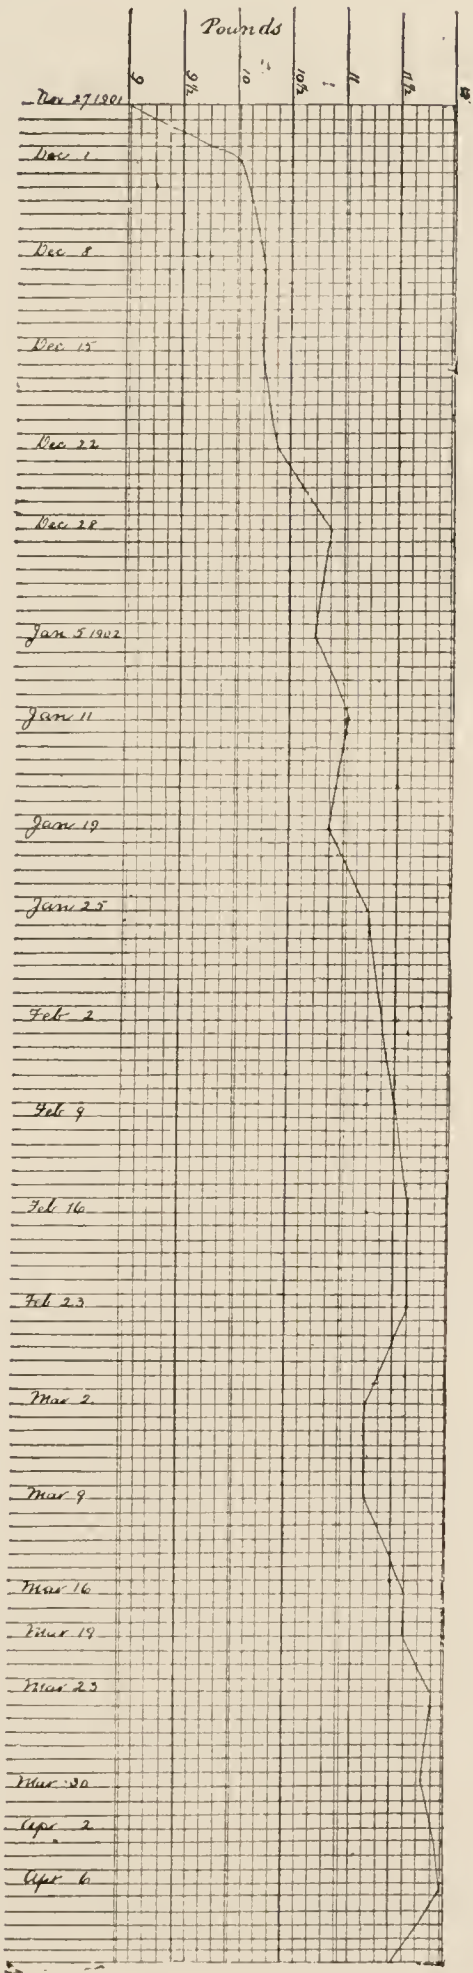 Pounds
9 9½ 10 10½ 11 11½ 12
Nov 27 1901
Dec 1
Dec 8
Dec 15
Dec 22
Dec 28
Jan 5 1902
Jan 11
Jan 19
Jan 25
Feb 2
Feb 9
Feb 16
Feb 23
Mar 2
Mar 9
Mar 16
Mar 19
Mar 23
Mar 30
Apr 2
Apr 6